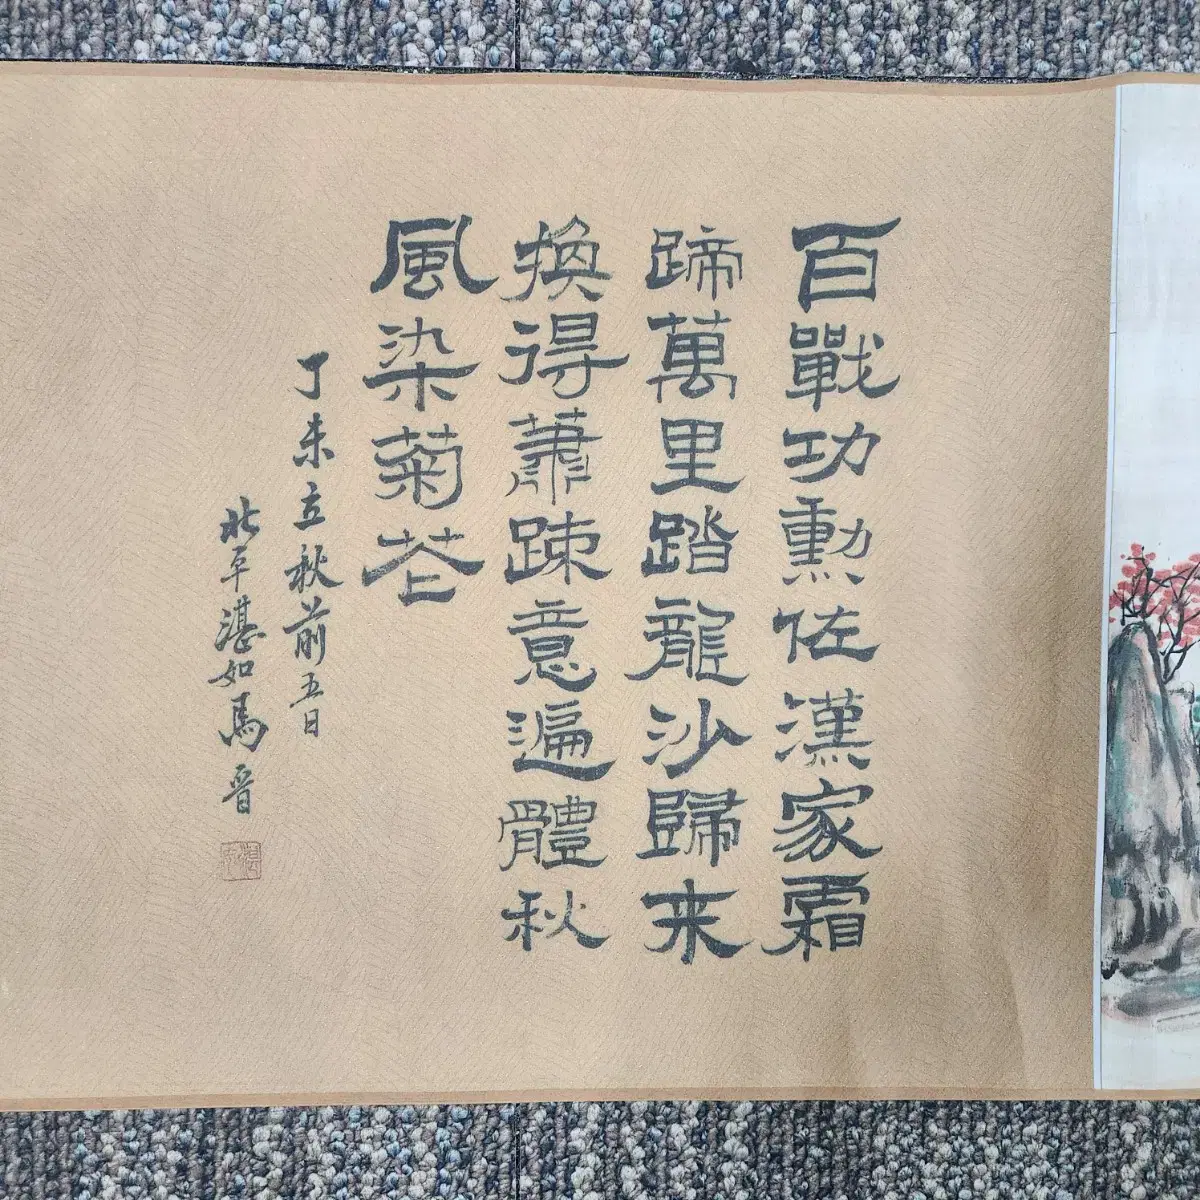 百戰功勳佐漢家霜
蹄萬里踏龍沙歸来
換得蕭疎意遍體秋
風染菊花
丁未立秋前五日
北平湛如馬晉